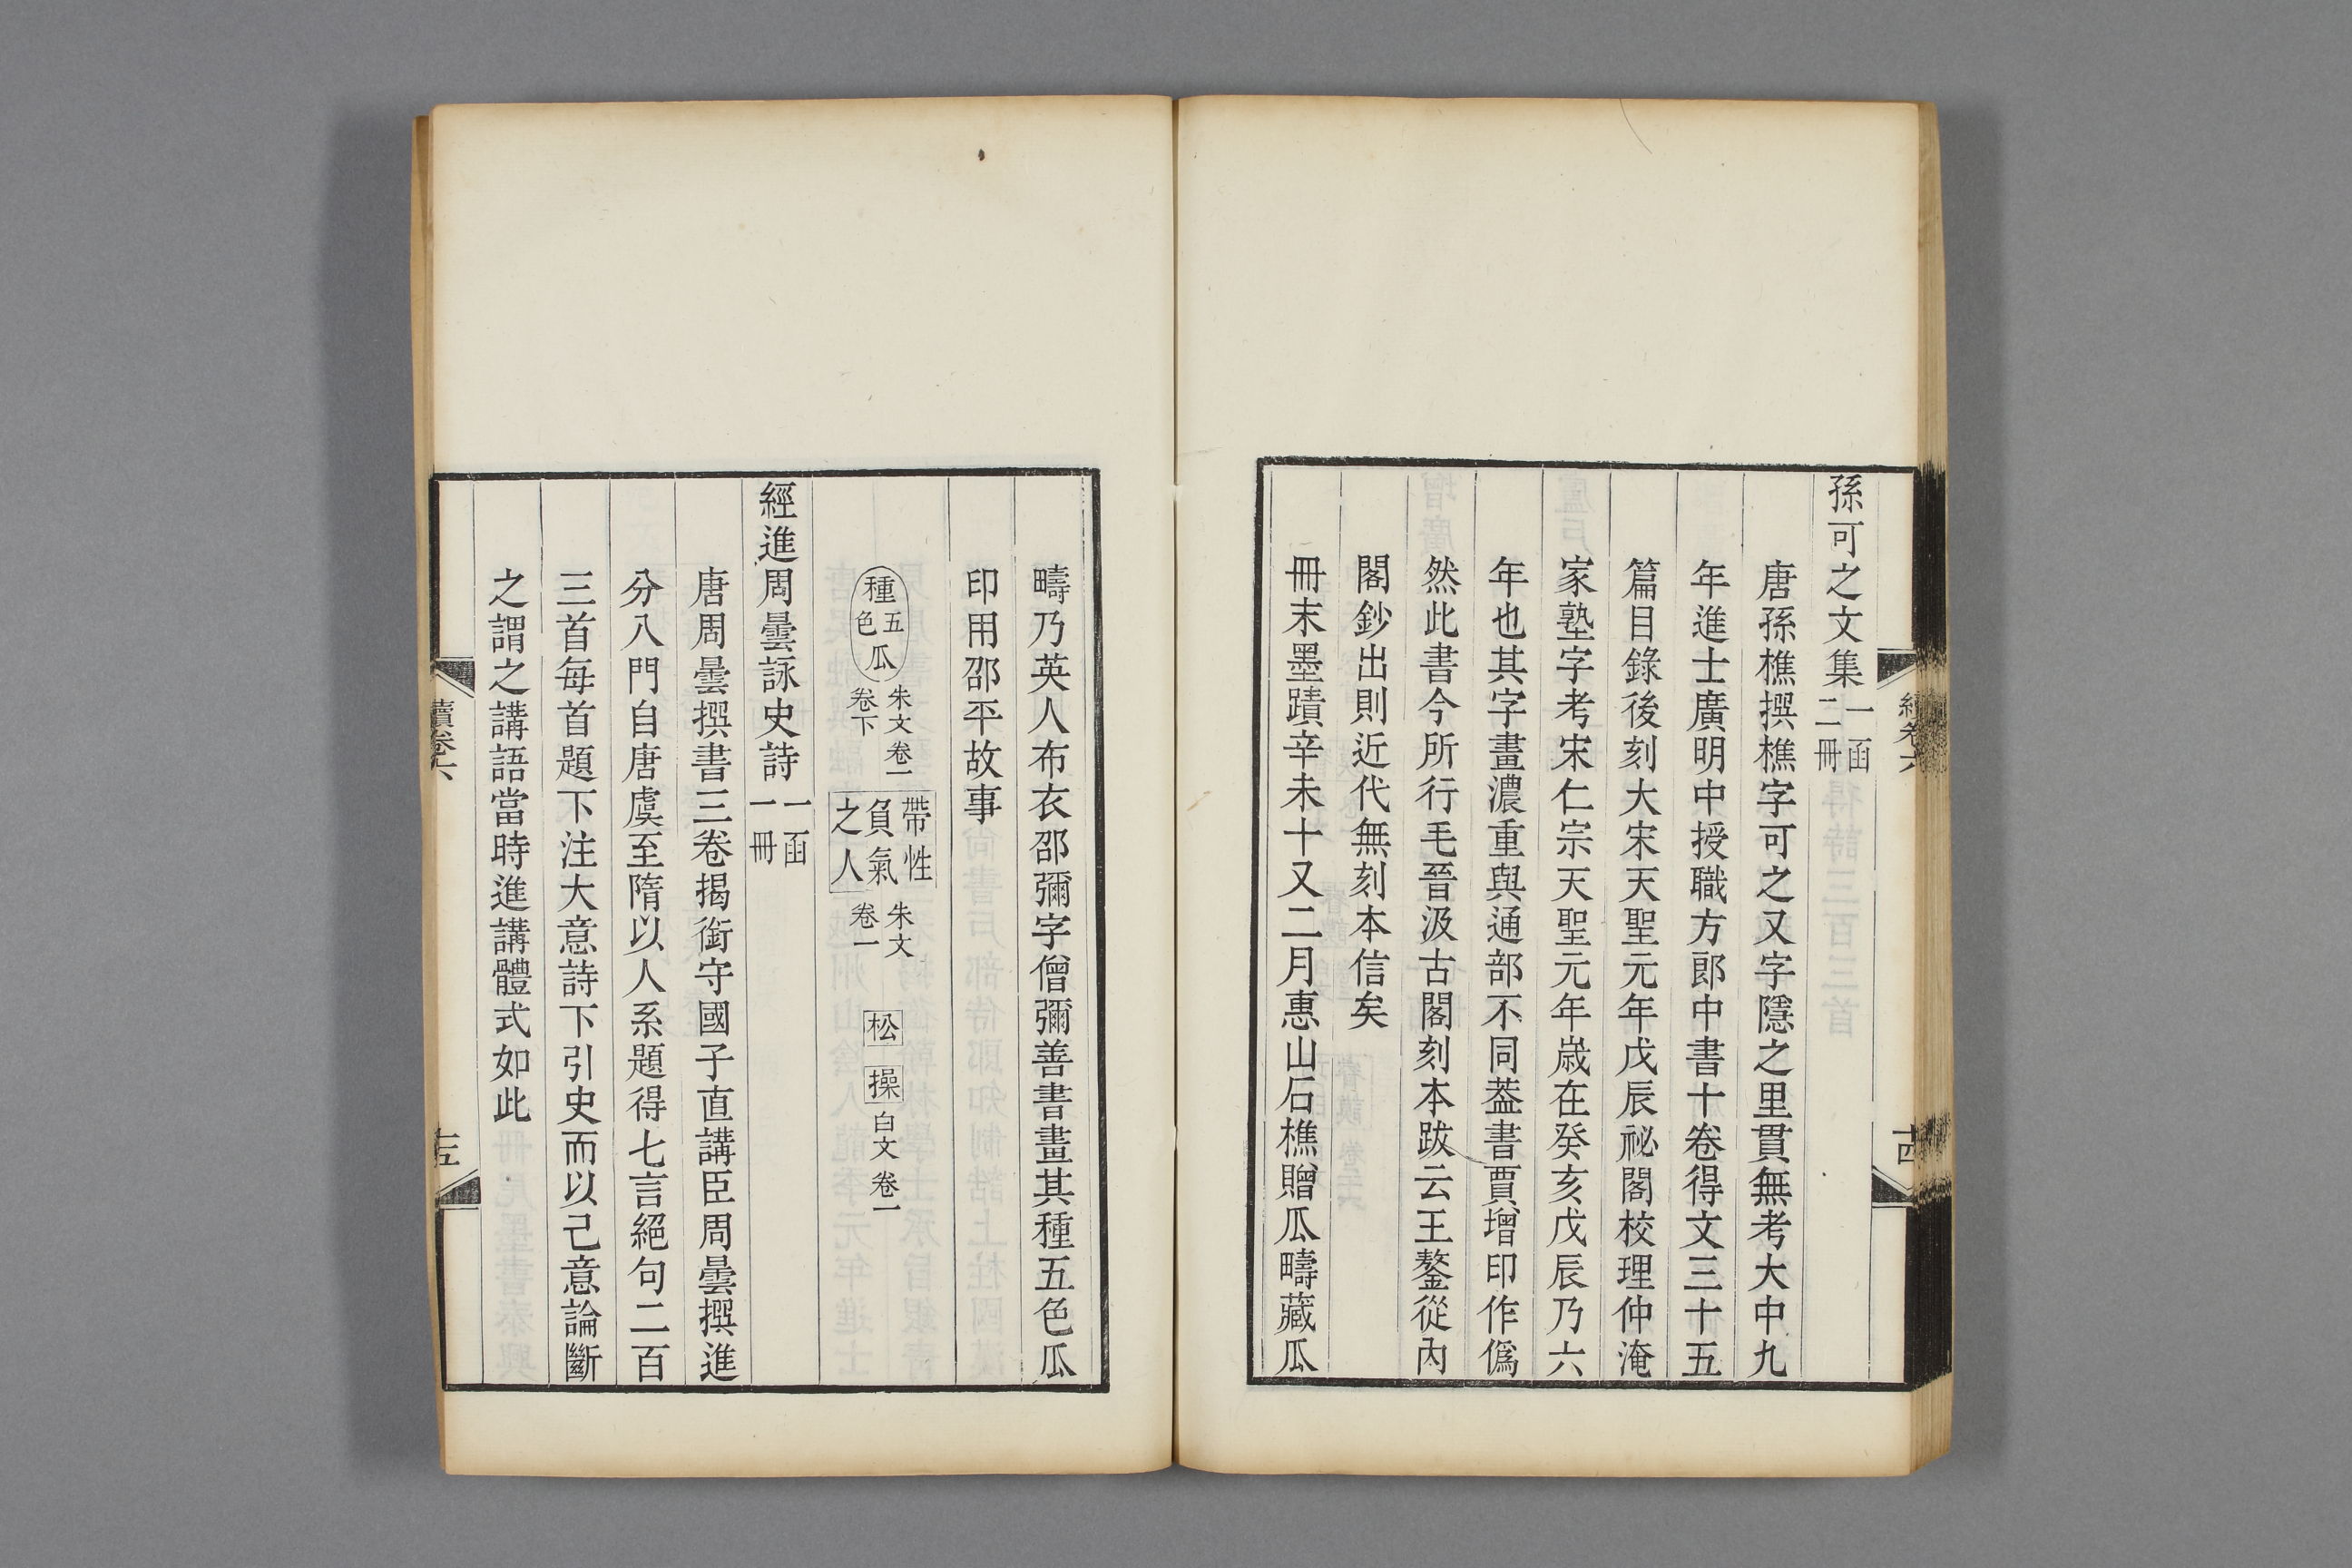 孫可之文集一函二冊
唐孫樵撰樵字可之又字隱之里貫無考大中九
年進士廣明中授職方郎中書十卷得文三十五
篇目錄後刻大宋天聖元年戊辰祕閣校理仲淹
家塾字考宋仁宗天聖元年歲在癸亥戊辰乃六
年也其字畫濃重與通部不同葢書賈增印作僞
然此書今所行毛晉汲古閣刻本跋云王鏊從內
閣鈔出則近代無刻本信矣
冊末墨蹟辛未十又二月惠山石樵贈瓜疇藏瓜
續卷六
十四
疇乃英人布衣邵彌字僧彌善書畫其種五色瓜
印用邵平故事
種五色瓜 朱文卷一卷下 帶性負氣之人 朱文卷一 松 操 白文卷一
經進周曇詠史詩一函一冊
唐周曇撰書三卷揭銜守國子直講臣周曇撰進
分八門自唐虞至隋以人系題得七言絕句二百
三首每首題下注大意詩下引史而以己意論斷
之謂之講語當時進講體式如此
續卷六
十五